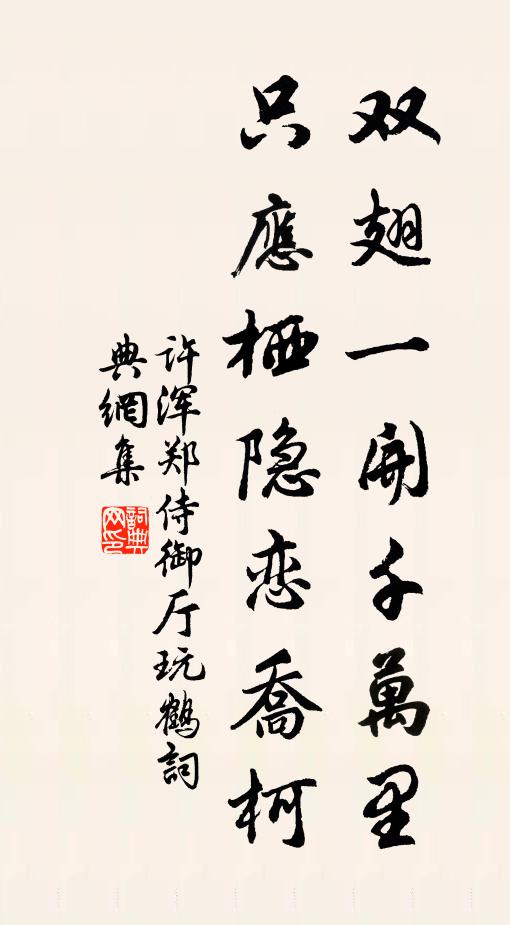 双翅一開千萬里
只應栖隐恋喬柯
许浑郑侍御厅玩鹤詞
典網集
詞典
网印